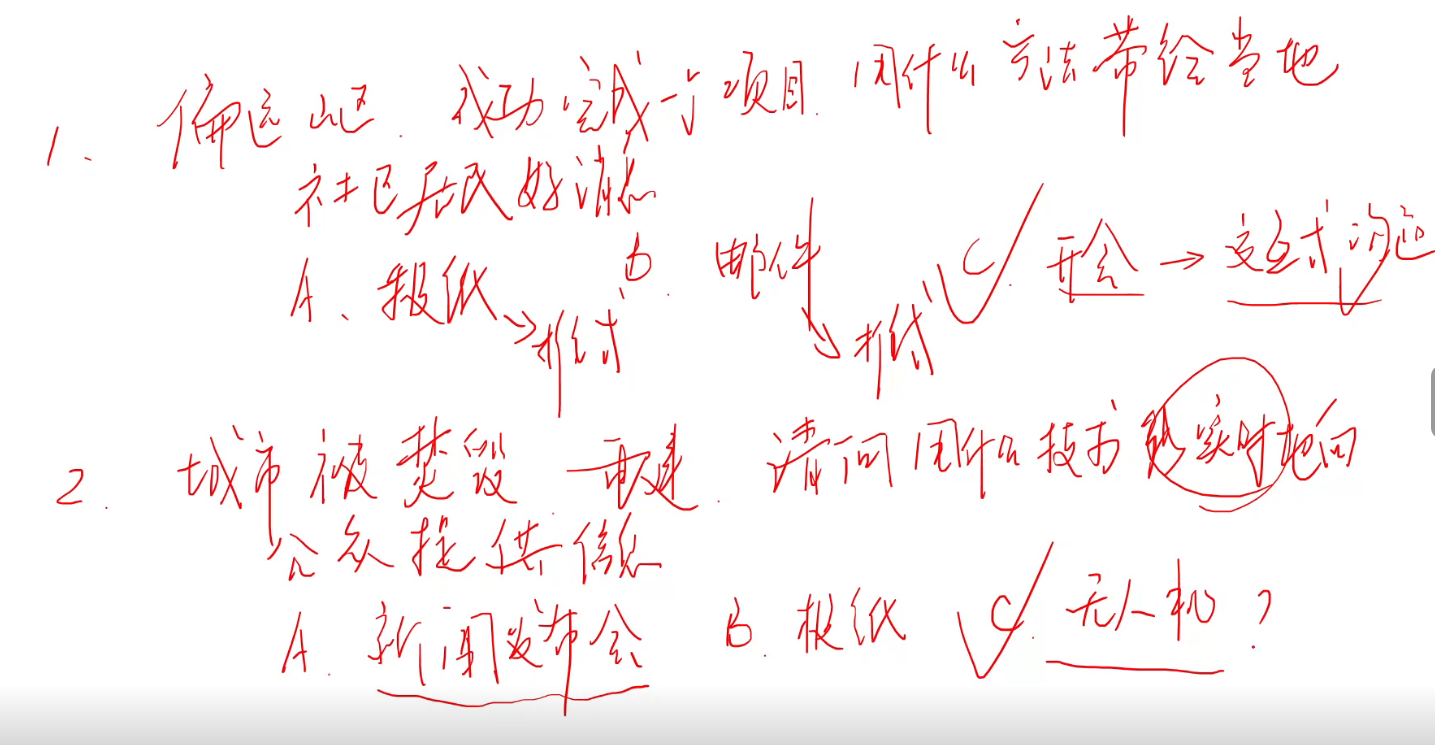 1、偏远山区. 成功完成一个项目. 用什么方法带给当地
社区居民好消息
A、报纸→推式 B. 邮件→推式 C. 开会→交互式沟通
2. 城市被焚毁. 重建. 请问用什么技术能实时地向
公众提供信息
A. 新闻发布会 B. 报纸 C. 无人机?